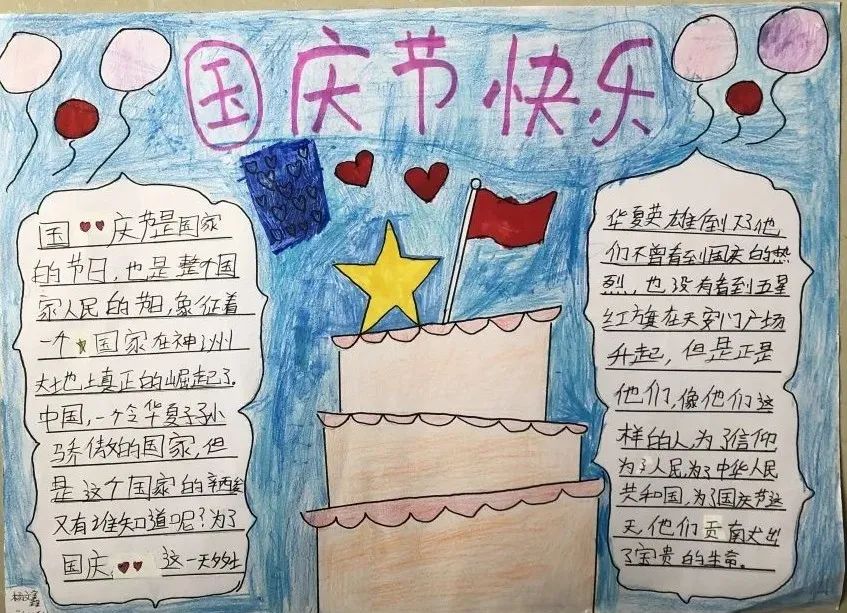 国庆节快乐
国庆节是国家
的节日,也是整个国
家人民的节日,象征着
一个国家在神州
大地上真正的崛起了.
中国,一个令华夏子孙
骄傲的国家,但
是这个国家的辛酸
又有谁知道呢?为了
国庆这一天多少
华夏英雄倒下了他
们不曾看到国庆的热
烈,也没有看到五星
红旗在天安门广场
升起,但是正是
他们,像他们这
样的人为了信仰
为了人民为了中华人民
共和国,为了国庆节这
天他们贡献出
了宝贵的生命。